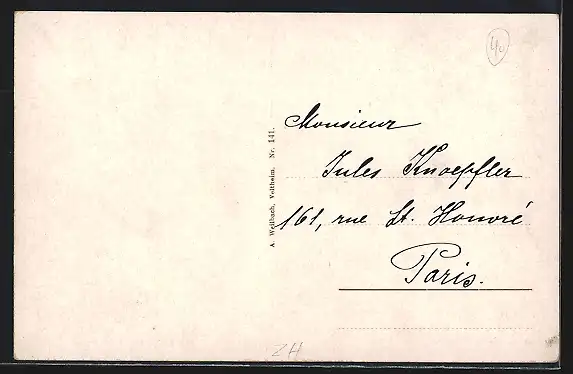 40
A. Weilbach, Veltheim. Nr. 141.
Monsieur
Jules Knoepfler
161, rue St. Honoré
Paris.
ZH